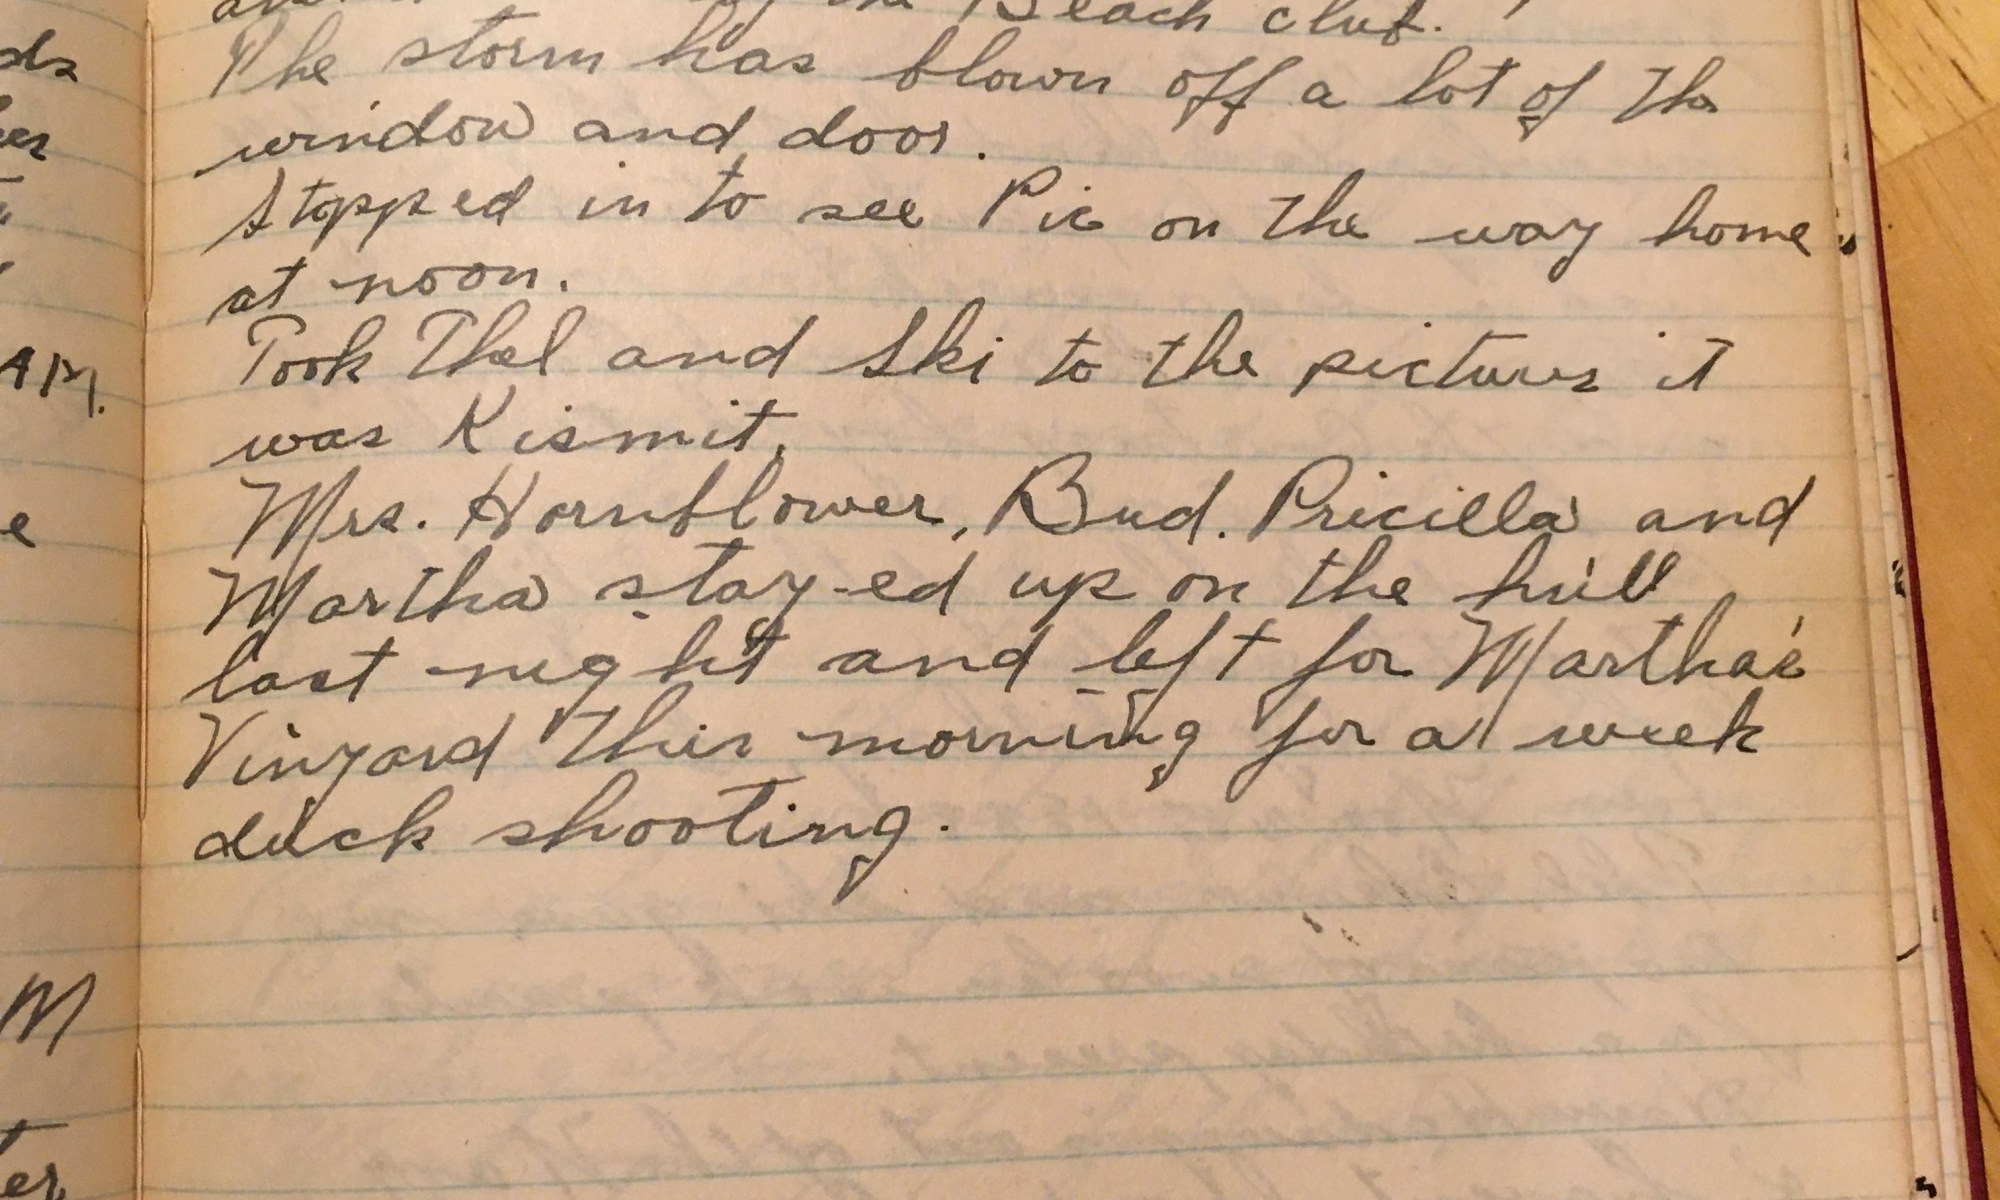 the Beach club.
The storm has blown off a lot of the
window and door.
Stopped in to see Pic on the way home
at noon.
Took Thel and Ski to the pictures it
was Kismit.
Mrs. Hornblower, Bud. Pricilla and
Martha stay-ed up on the hill
last night and left for Martha's
Vinyard this morning for a week
duck shooting.
AM.
e
M